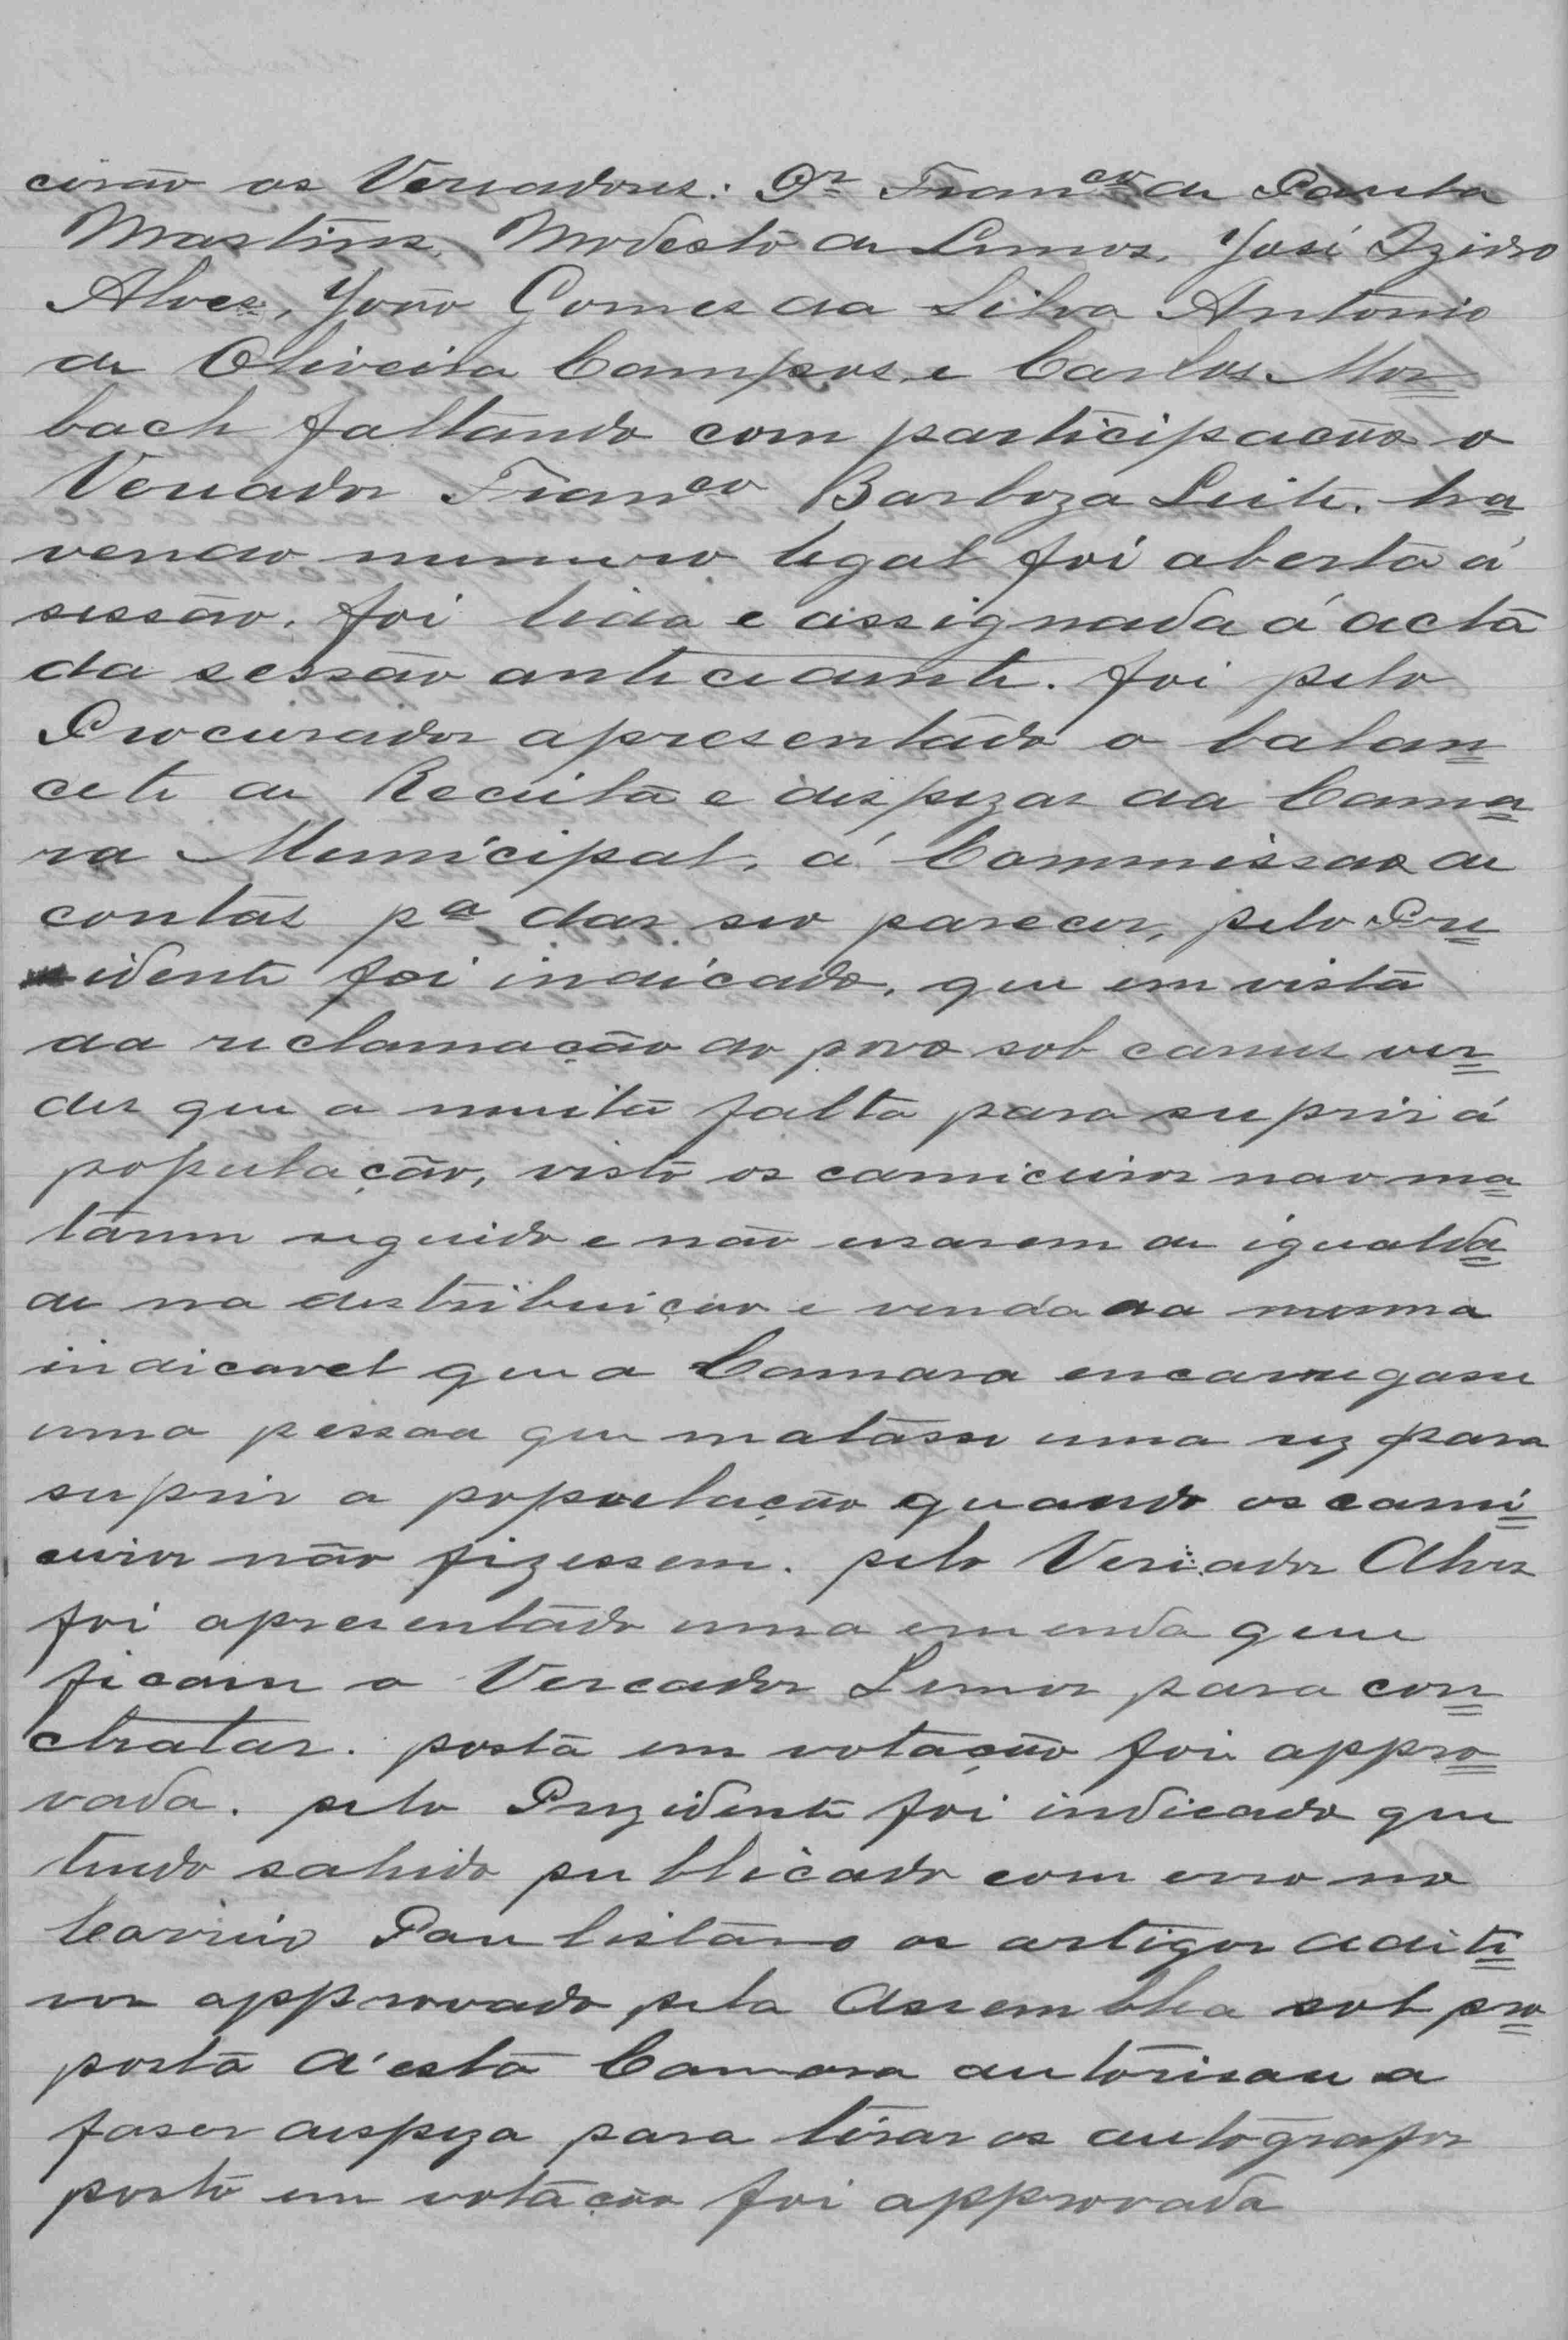 cerão os Vereadores: Dr Franco de Paula
Martins, Modesto de Lemos, José Izidro
Alves, João Gomes da Silva Antonio
de Oliveira Campos e Carlos Mor=
bach faltando com participação o
Vereador Franco Barboza Leite. ha=
vendo numero legal foi aberta á
sessão. foi lida e assignada á acta
da sessão antecedente. foi pelo
Procurador apresentado o balan=
cete de Receita e despezas da Cama=
ra Municipal, á Commissão de
contas pa dar seo parecer, pelo Pre=
sidente foi indicado, que em vista
da reclamação do povo sob carnes ver=
des que a muita falta para suprir á
população, visto os carniceiros não ma=
tarem seguido e não usarem de igualda=
de na destribuição e venda da mesma
indicavel que a Camara encarregasse
uma pessoa que matasse uma rez para
suprir a população quando os carni=
ceiros não fizessem. pelo Veriador Alves
foi apresentado uma emenda que
ficasse o Vereador Lemos para con=
ctratar. posta em votação foi appro=
vada. pelo Prezidente foi indicado que
tendo sahido publicado com erro no
Correio Paulistano os artigos aditi=
vos approvado pela Assemblea sob pro=
posta d'esta Camara autorisasse a
faser despeza para tirar os autografos
posto em votação foi approvada